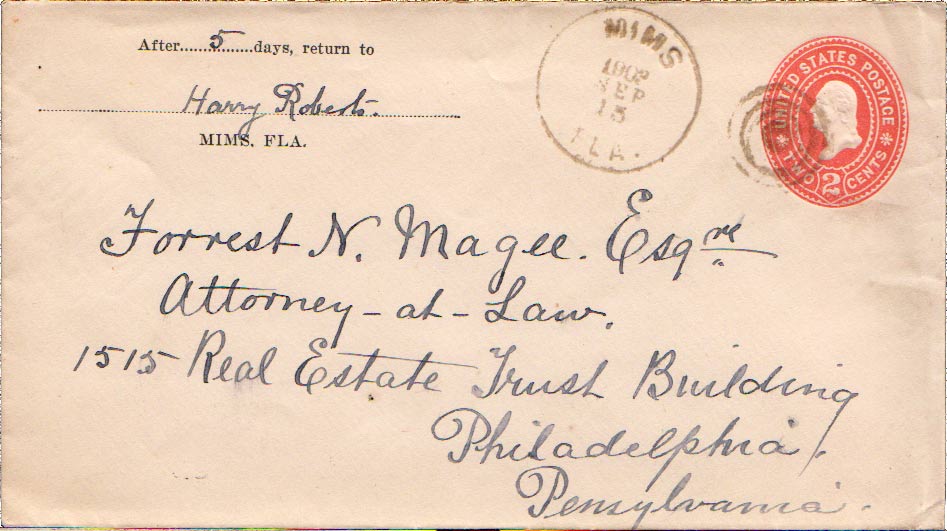 After.......5.......days, return to
Harry Roberts.
MIMS, FLA.
MIMS
1902
SEP
13
FLA.
UNITED STATES POSTAGE
* TWO 2 CENTS *
Forrest N. Magee. Esqre
Attorney-at-Law.
1515 Real Estate Trust Building
Philadelphia,
Pensylvania.